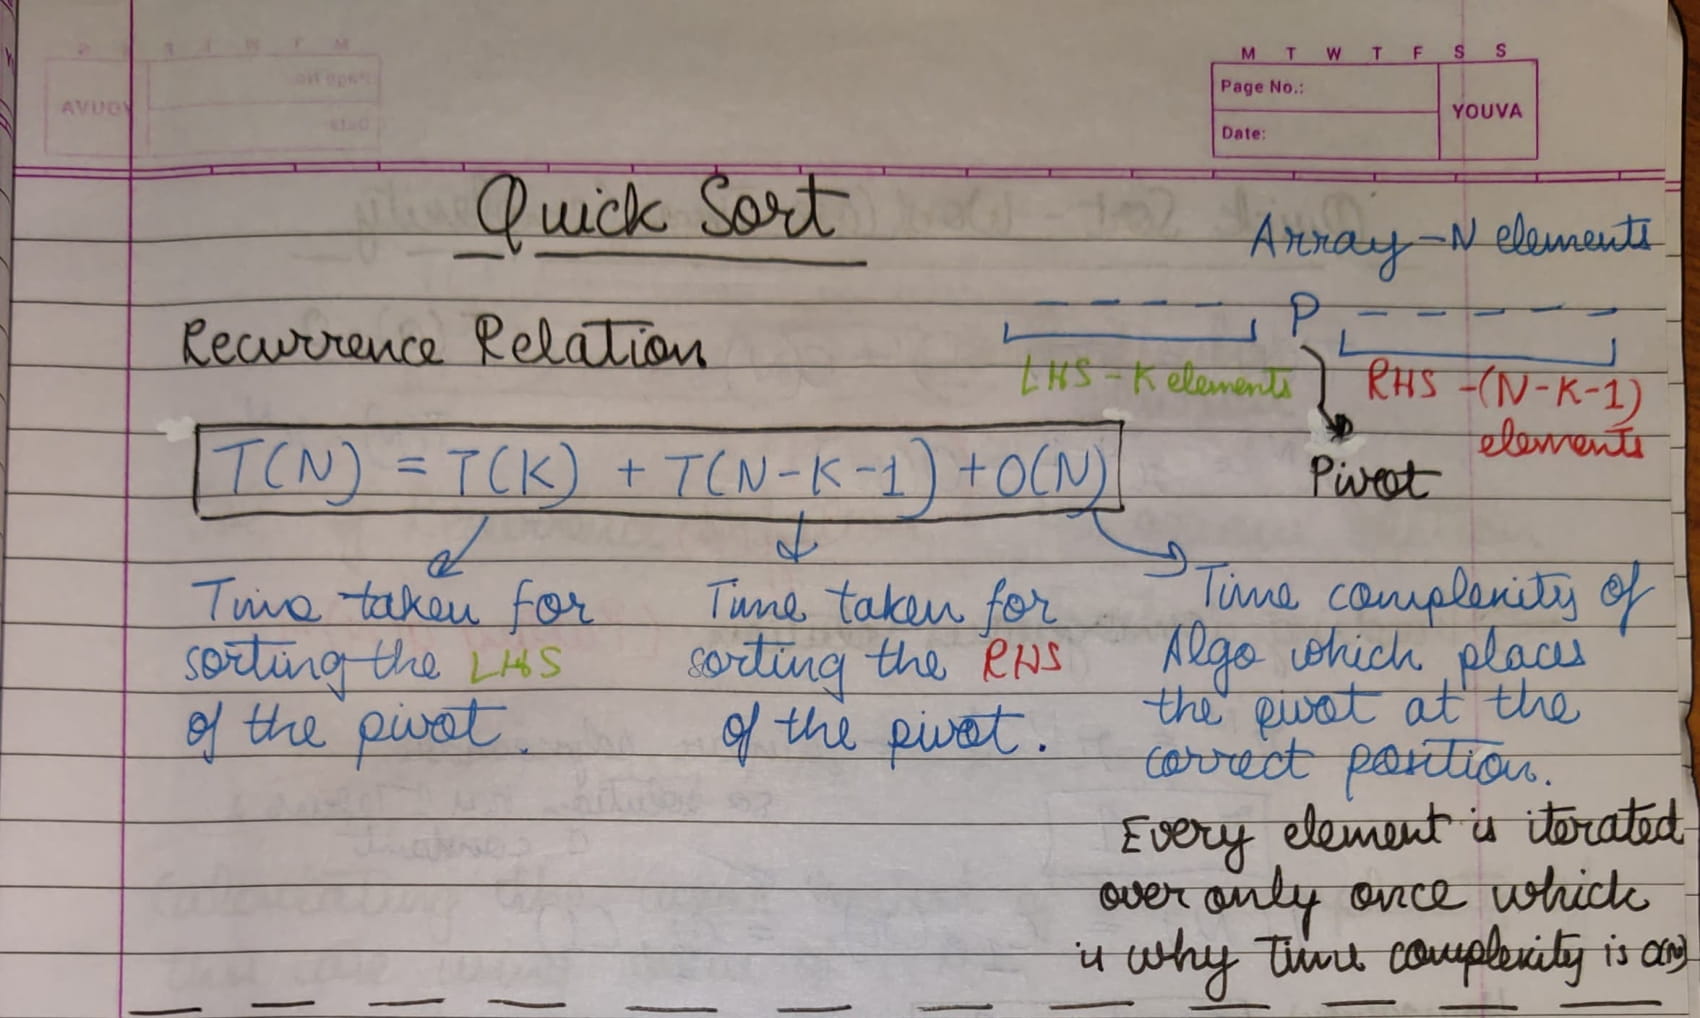 M T W T F S S
Page No.:
YOUVA
Date:
Quick Sort
Array - N elements
P
Recurrence Relation
LHS - K elements
RHS - (N-K-1)
elements
Pivot
T(N) = T(K) + T(N-K-1) + O(N)
Time taken for
sorting the LHS
of the pivot.
Time taken for
sorting the RHS
of the pivot.
Time complexity of
Algo which places
the pivot at the
correct position.
Every element is iterated
over only once which
is why Time complexity is O(N)